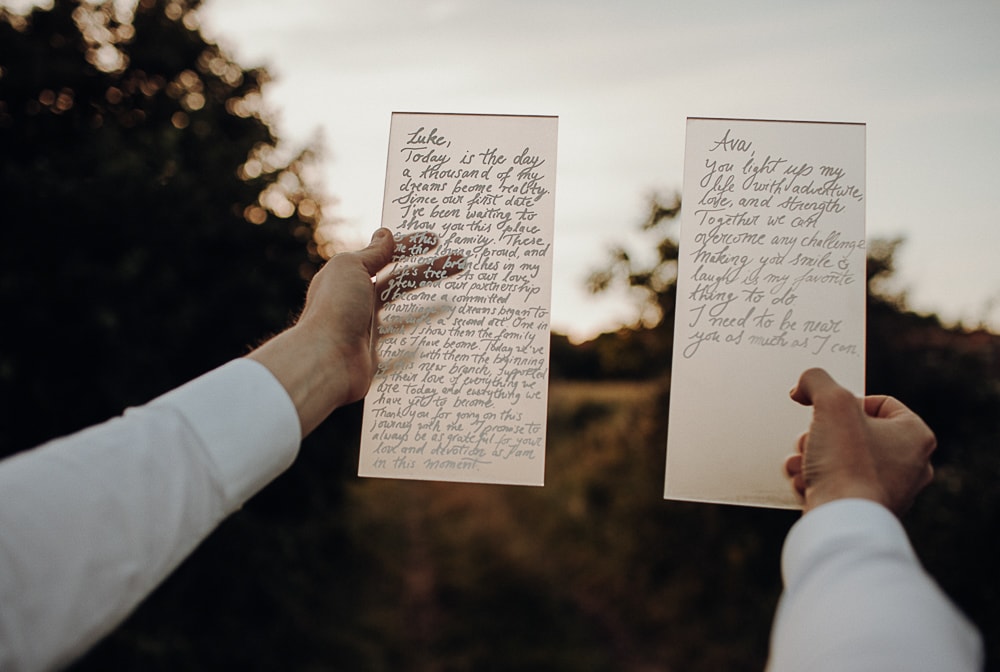 Luke,
Today is the day
a thousand of my
dreams become reality.
Since our first date
I've been waiting to
show you this place
this family. These
are the loving, proud, and
branches in my
life's tree. As our love
grew, and our partnership
became a committed
marriage my dreams began to
a second act. One in
which I show them the family
you & I have become. Today we've
shared with them the beginning
of this new branch, supported
by their love of everything we
are today and everything we
have yet to become.
Thank you for going on this
journey with me. I promise to
always be as grateful for your
love and devotion as I am
in this moment.
Ava,
You light up my
life with adventure,
love, and strength
Together we can
overcome any challenge
Making you smile &
laugh is my favorite
thing to do
I need to be near
you as much as I can.